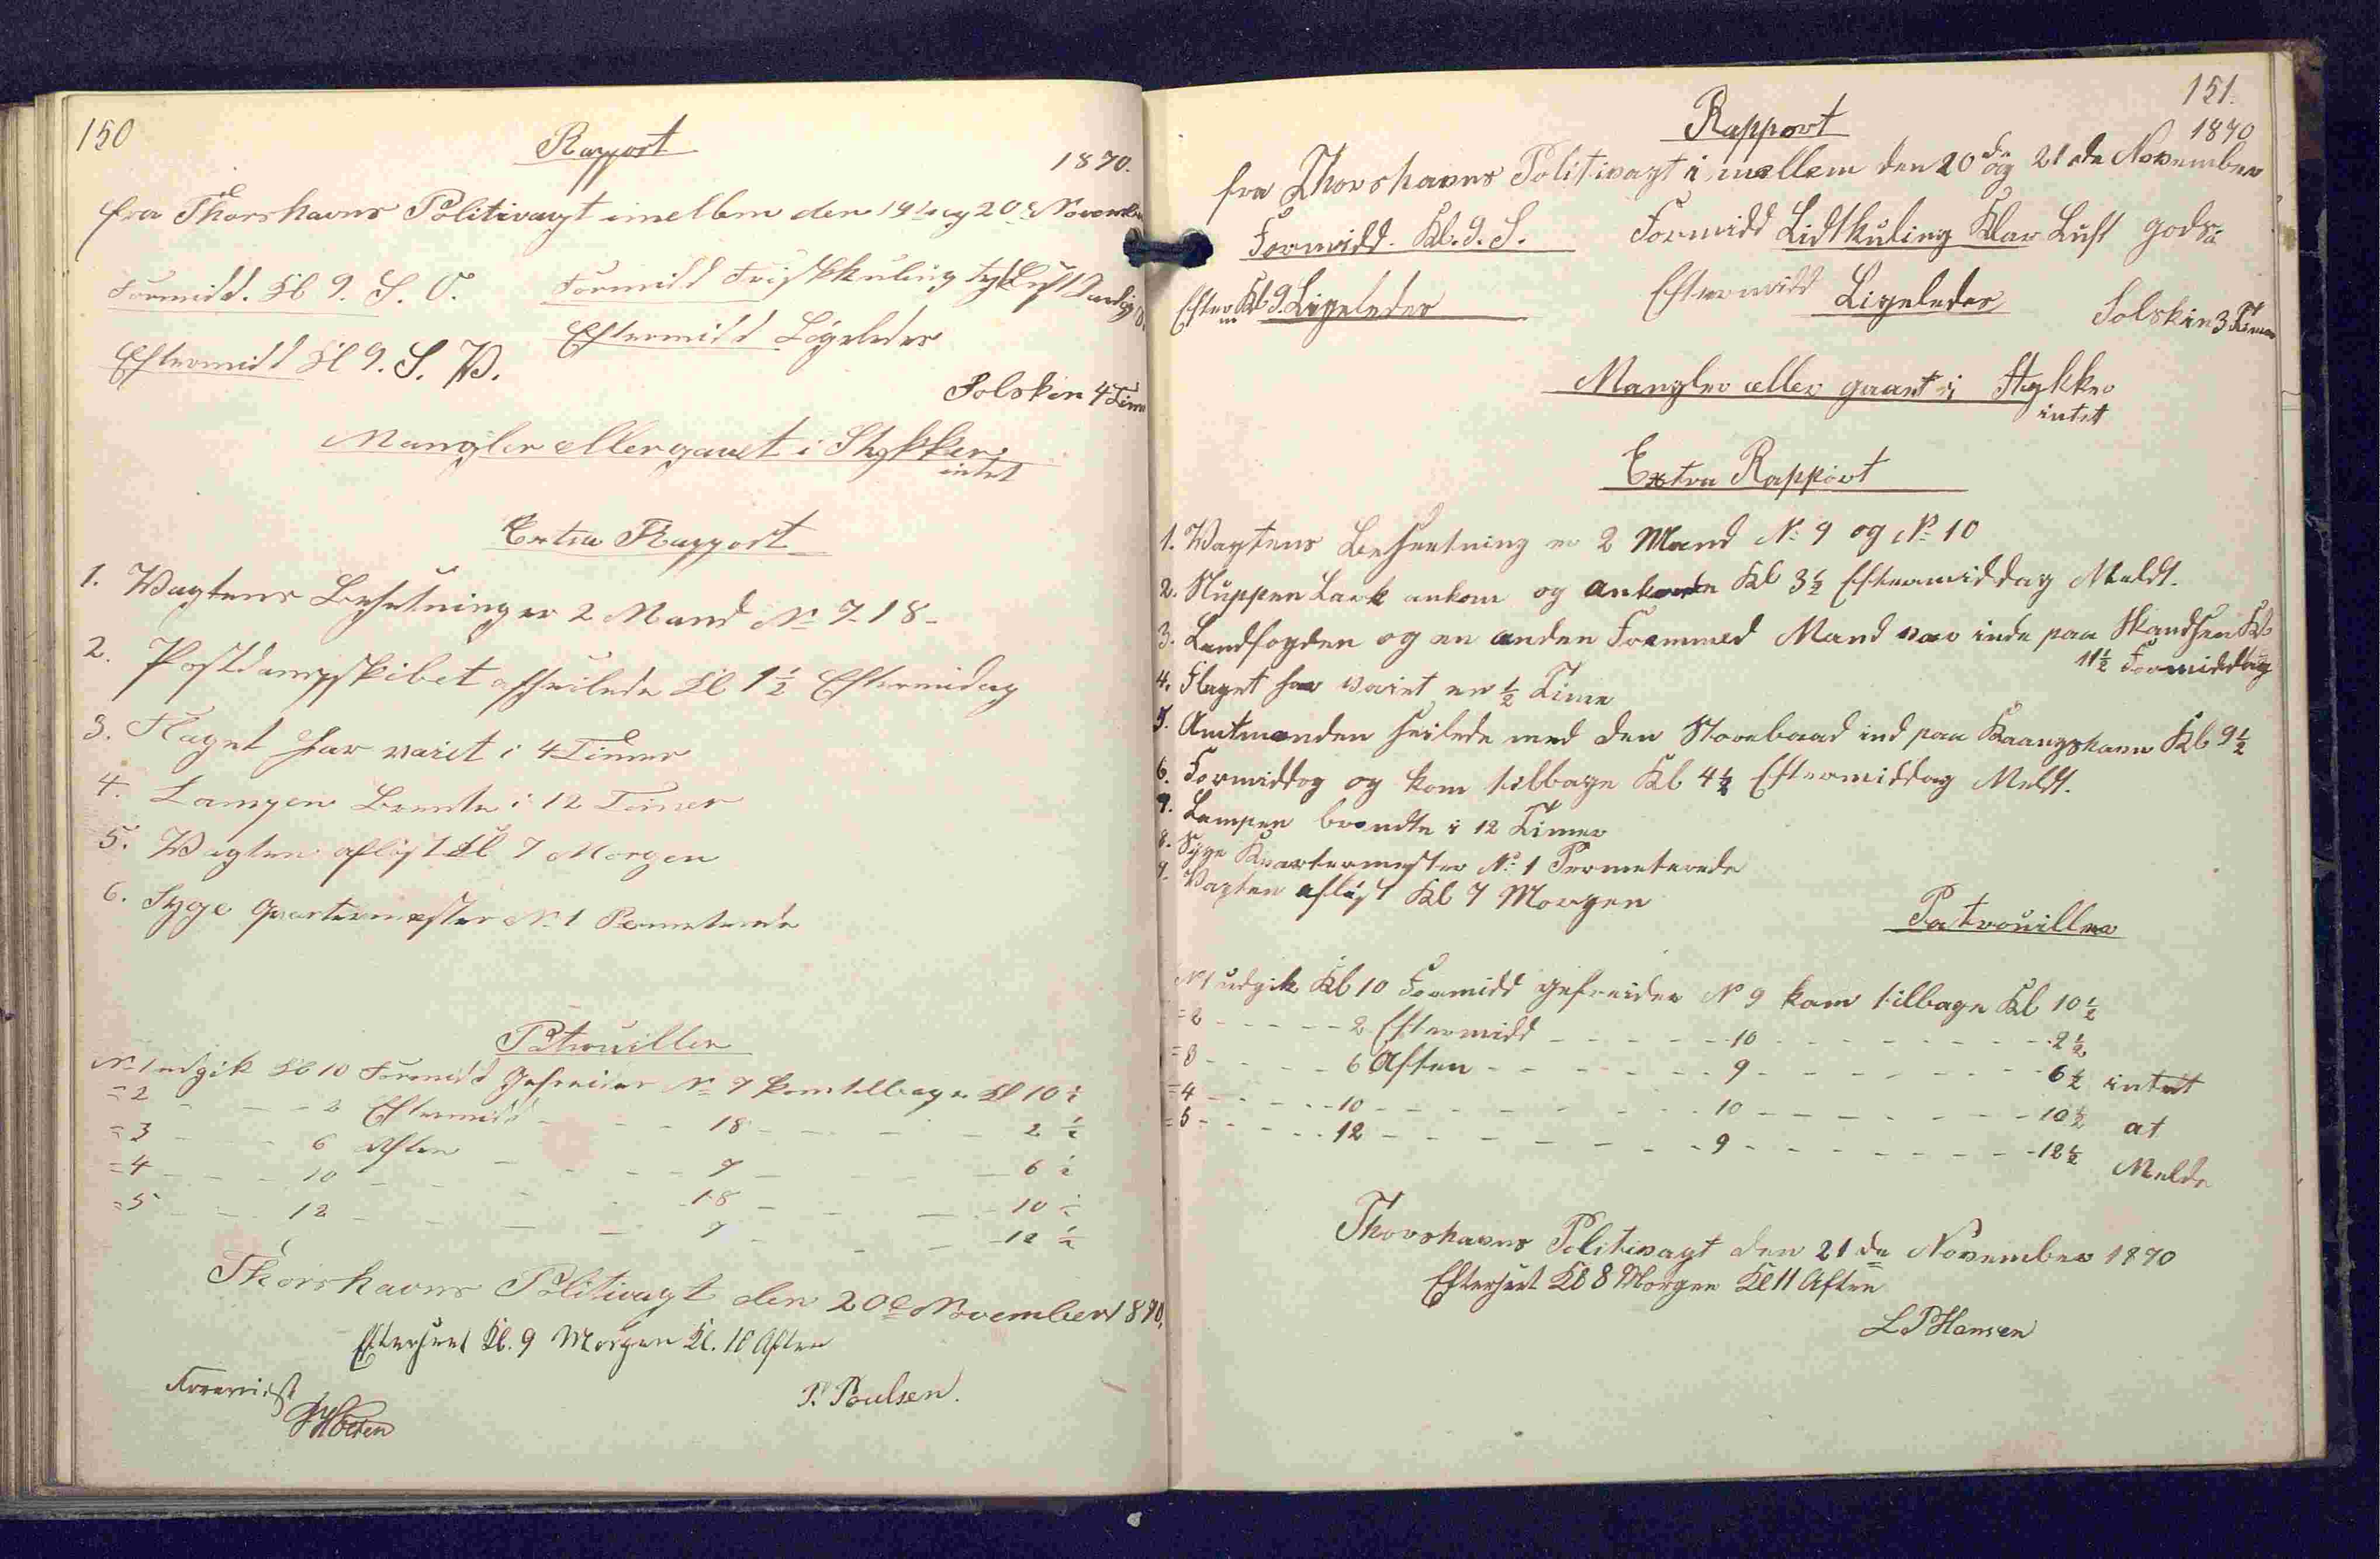 150
Rapport
1870.
fra Thorshavns Politivagt imellem den 19de og 20de November
Formidd. Kl 9. S. O. Formidd Friskkuling tyk Luft
Eftermidd Kl 9. S. V. Eftermidd Ligeledes
Solskin 4 Time
Mangler eller gaaet i Stykker
intet
Extra Rapport
1. Vagtens Besetning er 2 Mand No 7-18-
2. Postdampskibet afseilede Kl 1½ Eftermidag
3. Flaget har vaiet i 4 Timer
4. Lampen Brente i 12 Timer
5. Vagten afløst Kl 7 Morgen
6. Syge Quartermester No 1 Permeterede
Patrouiller
No 1 udgik Kl 10 Formidd Gefreider No 7 kom tilbage Kl 10 ½
=2 - - - 2 Eftermidd - - - 18 - - - - 2 ½
=3 - - 6 Aften - - - - 7 - - - 6 ½
=4 - - - 10 - - - - 18 - - - 10 ½
=5 - - 12 - - - - 7 - - - 12 ½
Thorshavns Politivagt den 20de November 1870.
Efterseet Kl. 9 Morgen Kl. 10 Aften
P. Poulsen.
Forevist
151.
Rapport
1870
fra Thorshavns Politivagt i mellem den 20de og 21de November
Formidd. Kl. 9. S. Formidd Lidt kuling Klar Luft gods:
Efterm Kl 9. Ligeledes Eftermidd Ligeledes
Solskin 3 Timer
Mangler eller gaaet i Stykker
intet
Extra Rapport
1. Vagtens Besætning er 2 Mand No 9 og No 10
2. Sluppen Lark ankom og ankrede Kl 3½ Eftermiddag Meldt.
3. Landfogden og en anden Fremmed Mand var inde paa Skandsen Kl
11½ Formiddag
4. Flaget har vaiet en ½ Time
5. Amtmanden seilede med den Storebaad ind paa Kaangshavn Kl 9½
6. Formiddag og kom tilbage Kl 4½ Eftermiddag Meldt.
7. Lampen brændte i 12 Timer
8. Syge Kvartermester No 1 Permeterede
9. Vagten afløst Kl 7 Morgen
Patrouiller
No 1 udgik Kl 10 Formidd gefreider No 9 kom tilbage Kl 10½
=2 - - - - - 2 Eftermidd - - - - - 10 - - - - - - - 2½
=3 - - - - 6 Aften - - - - - - 9 - - - - - - - 6½ intet
=4 - - - - - 10 - - - - - - - - 10 - - - - - - 10½ at
=5 - - - - - 12 - - - - - - - 9 - - - - - - - 12½ Melde
Thorshavns Politivagt den 21de November 1870
Efterseet Kl 8 Morgen Kl 11 Aften
L P Hansen